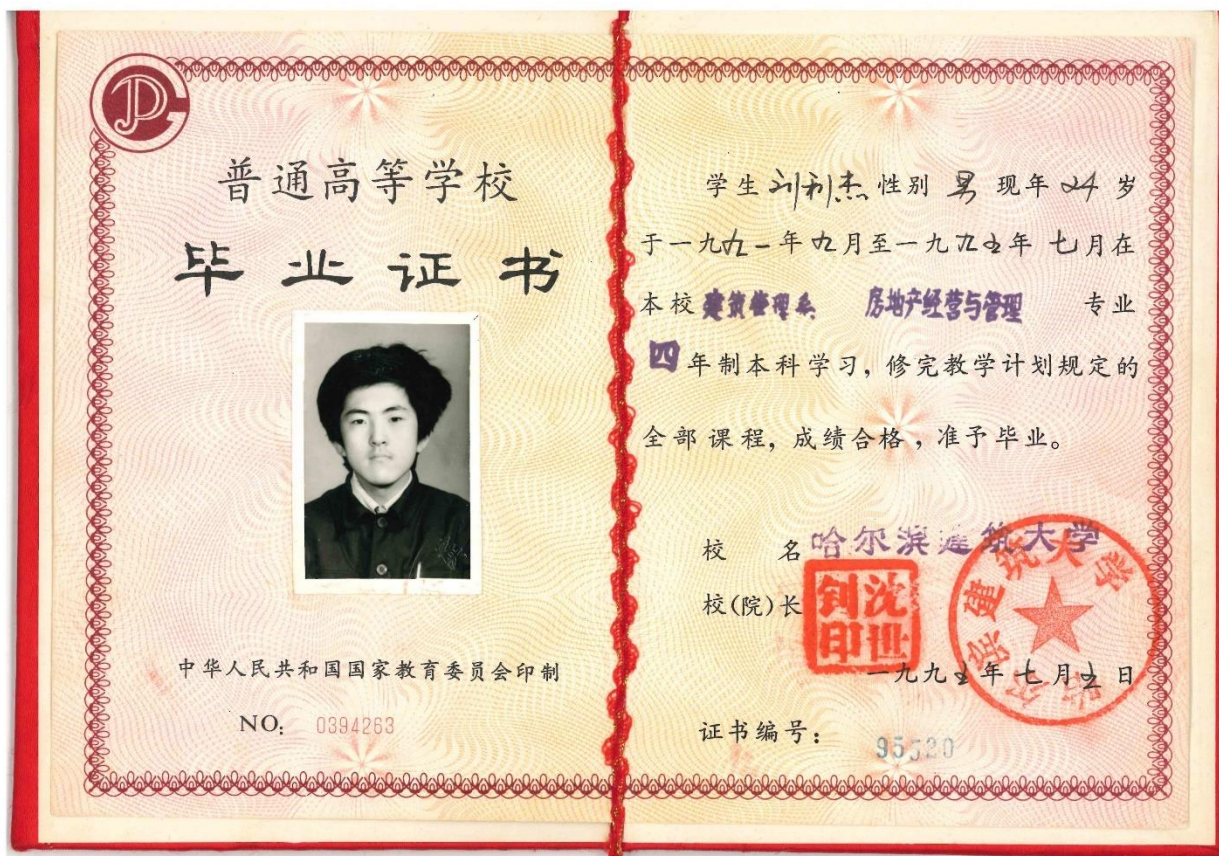 普通高等学校
毕业证书
中华人民共和国国家教育委员会印制
NO: 0394263
学生 刘利杰 性别 男 现年 24 岁
于一九九一年九月至一九九五年 七月在
本校 建筑管理系 房地产经营与管理 专业
四 年制本科学习, 修完教学计划规定的
全部课程, 成绩合格, 准予毕业。
校 名 哈尔滨建筑大学
校(院)长 沈世钊印
一九九五年七月五日
哈尔滨建筑大学
证书编号: 95520